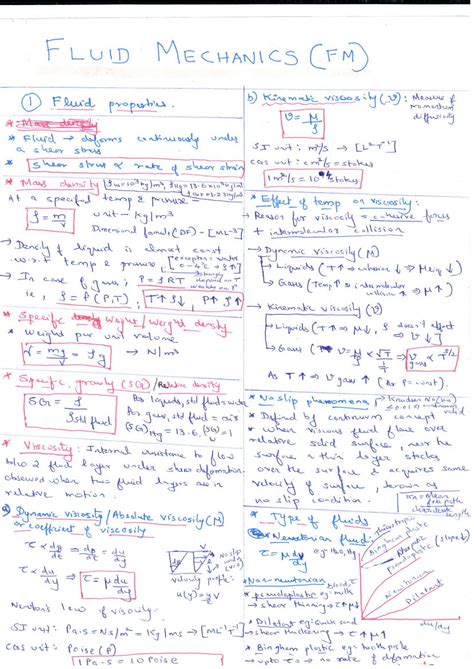 FLUID MECHANICS (FM)
① Fluid properties.
* Fluid → deforms continuously under
a shear stress
* Shear stress ∝ rate of shear strain
* Mass density
At a specified temp & pressure
ρ = m/v unit – Kg/m³
Dimensional formula (DF) – [ML⁻³]
→ Density of liquid is almost const
w.r.t temp & pressure
→ In case of gases; P = ρRT
ie, ρ = ρ(P,T); T↑ ρ↓, P↑ ρ↑
* Specific Weight/Weight density
* Weight per unit volume
γ = mg/v = ρg → N/m³
* Specific gravity (SG)/Relative density
SG = ρ/ρstd fluid
For liquids, std fluid = water
For gases, std fluid = air
(SG)Hg = 13.6,
* Viscosity: Internal resistance to flow
b/w 2 fluid layers under shear deformation
observed when two fluid layers are in
relative motion.
a) Dynamic viscosity/Absolute viscosity (μ)
or coefficient of viscosity
τ ∝ dθ/dt ⇒ dθ/dt = du/dy
τ ∝ du/dy ⇒ τ = μ du/dy
No slip
velocity profile:
u(y) =
Newton's law of viscosity.
SI unit: Pa·s = Ns/m² = Kg/ms → [ML⁻¹T⁻¹]
CGS unit: Poise (P)
1 Pa·s = 10 Poise
b) Kinematic viscosity (ν): Measure of
momentum
diffusivity
ν = μ/ρ
SI unit: m²/s → [L²T⁻¹]
CGS unit: cm²/s = stokes
1m²/s = 10⁴ stokes
* Effect of temp on viscosity:
→ Reason for viscosity = cohesive forces
+ intermolecular collision
→ Dynamic viscosity (μ)
→ Liquids (T↑ → cohesive ↓ ⇒ μliq ↓)
→ Gases (Temp↑ ⇒ intermolecular
collision ↑ ⇒ μ↑)
→ Kinematic viscosity (ν)
→ Liquids (T↑ ⇒ μ↓, ρ doesn't effect
⇒ ν↓)
→ Gases
As T↑ ⇒ νgas ↑ (As P = const).
* No slip phenomena
* Defined by continuum concept
* When viscous fluid flows over
relative solid surface, near the
surface a thin layer sticks
over the surface & acquires same
velocity of surface, known as
no slip condition.
* Type of fluids
* Newtonian fluid:
τ = μ du/dy eg: H₂O, Hg
* Non-newtonian
* pseudoplastic eg: milk
→ shear thinning τ↑ μ↓
* Dilatent
→ shear thickening τ↑ μ↑
* Bingham plastic eg: toothpaste
→ upto τ₀ → no rate of deformation
Thixotropic
Bingham plastic
Pseudo plastic
Newtonian
Dilatent
du/dy